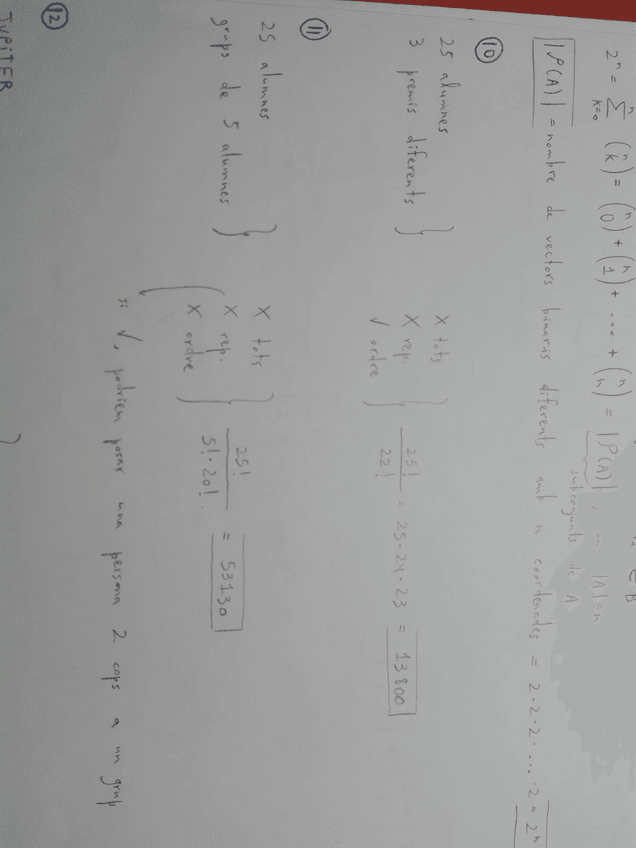 ∈ B
2ⁿ = Σ_{k=0}^{n} (n k) = (n 0) + (n 1) + ... + (n n) = |P(A)|, on |A|=n
subconjunts de A
|P(A)| = nombre de vectors binaris diferents amb n coordenades = 2·2·2·...·2 = 2ⁿ
⑩
25 alumnes
3 premis diferents }
X tots
X rep.
√ ordre }
25! / 22! = 25·24·23 = 13800
⑪
25 alumnes
grups de 5 alumnes }
X tots
X rep.
X ordre }
25! / 5!·20! = 53130
si √, podríem posar una persona 2 cops a un grup
⑫
JUPITER